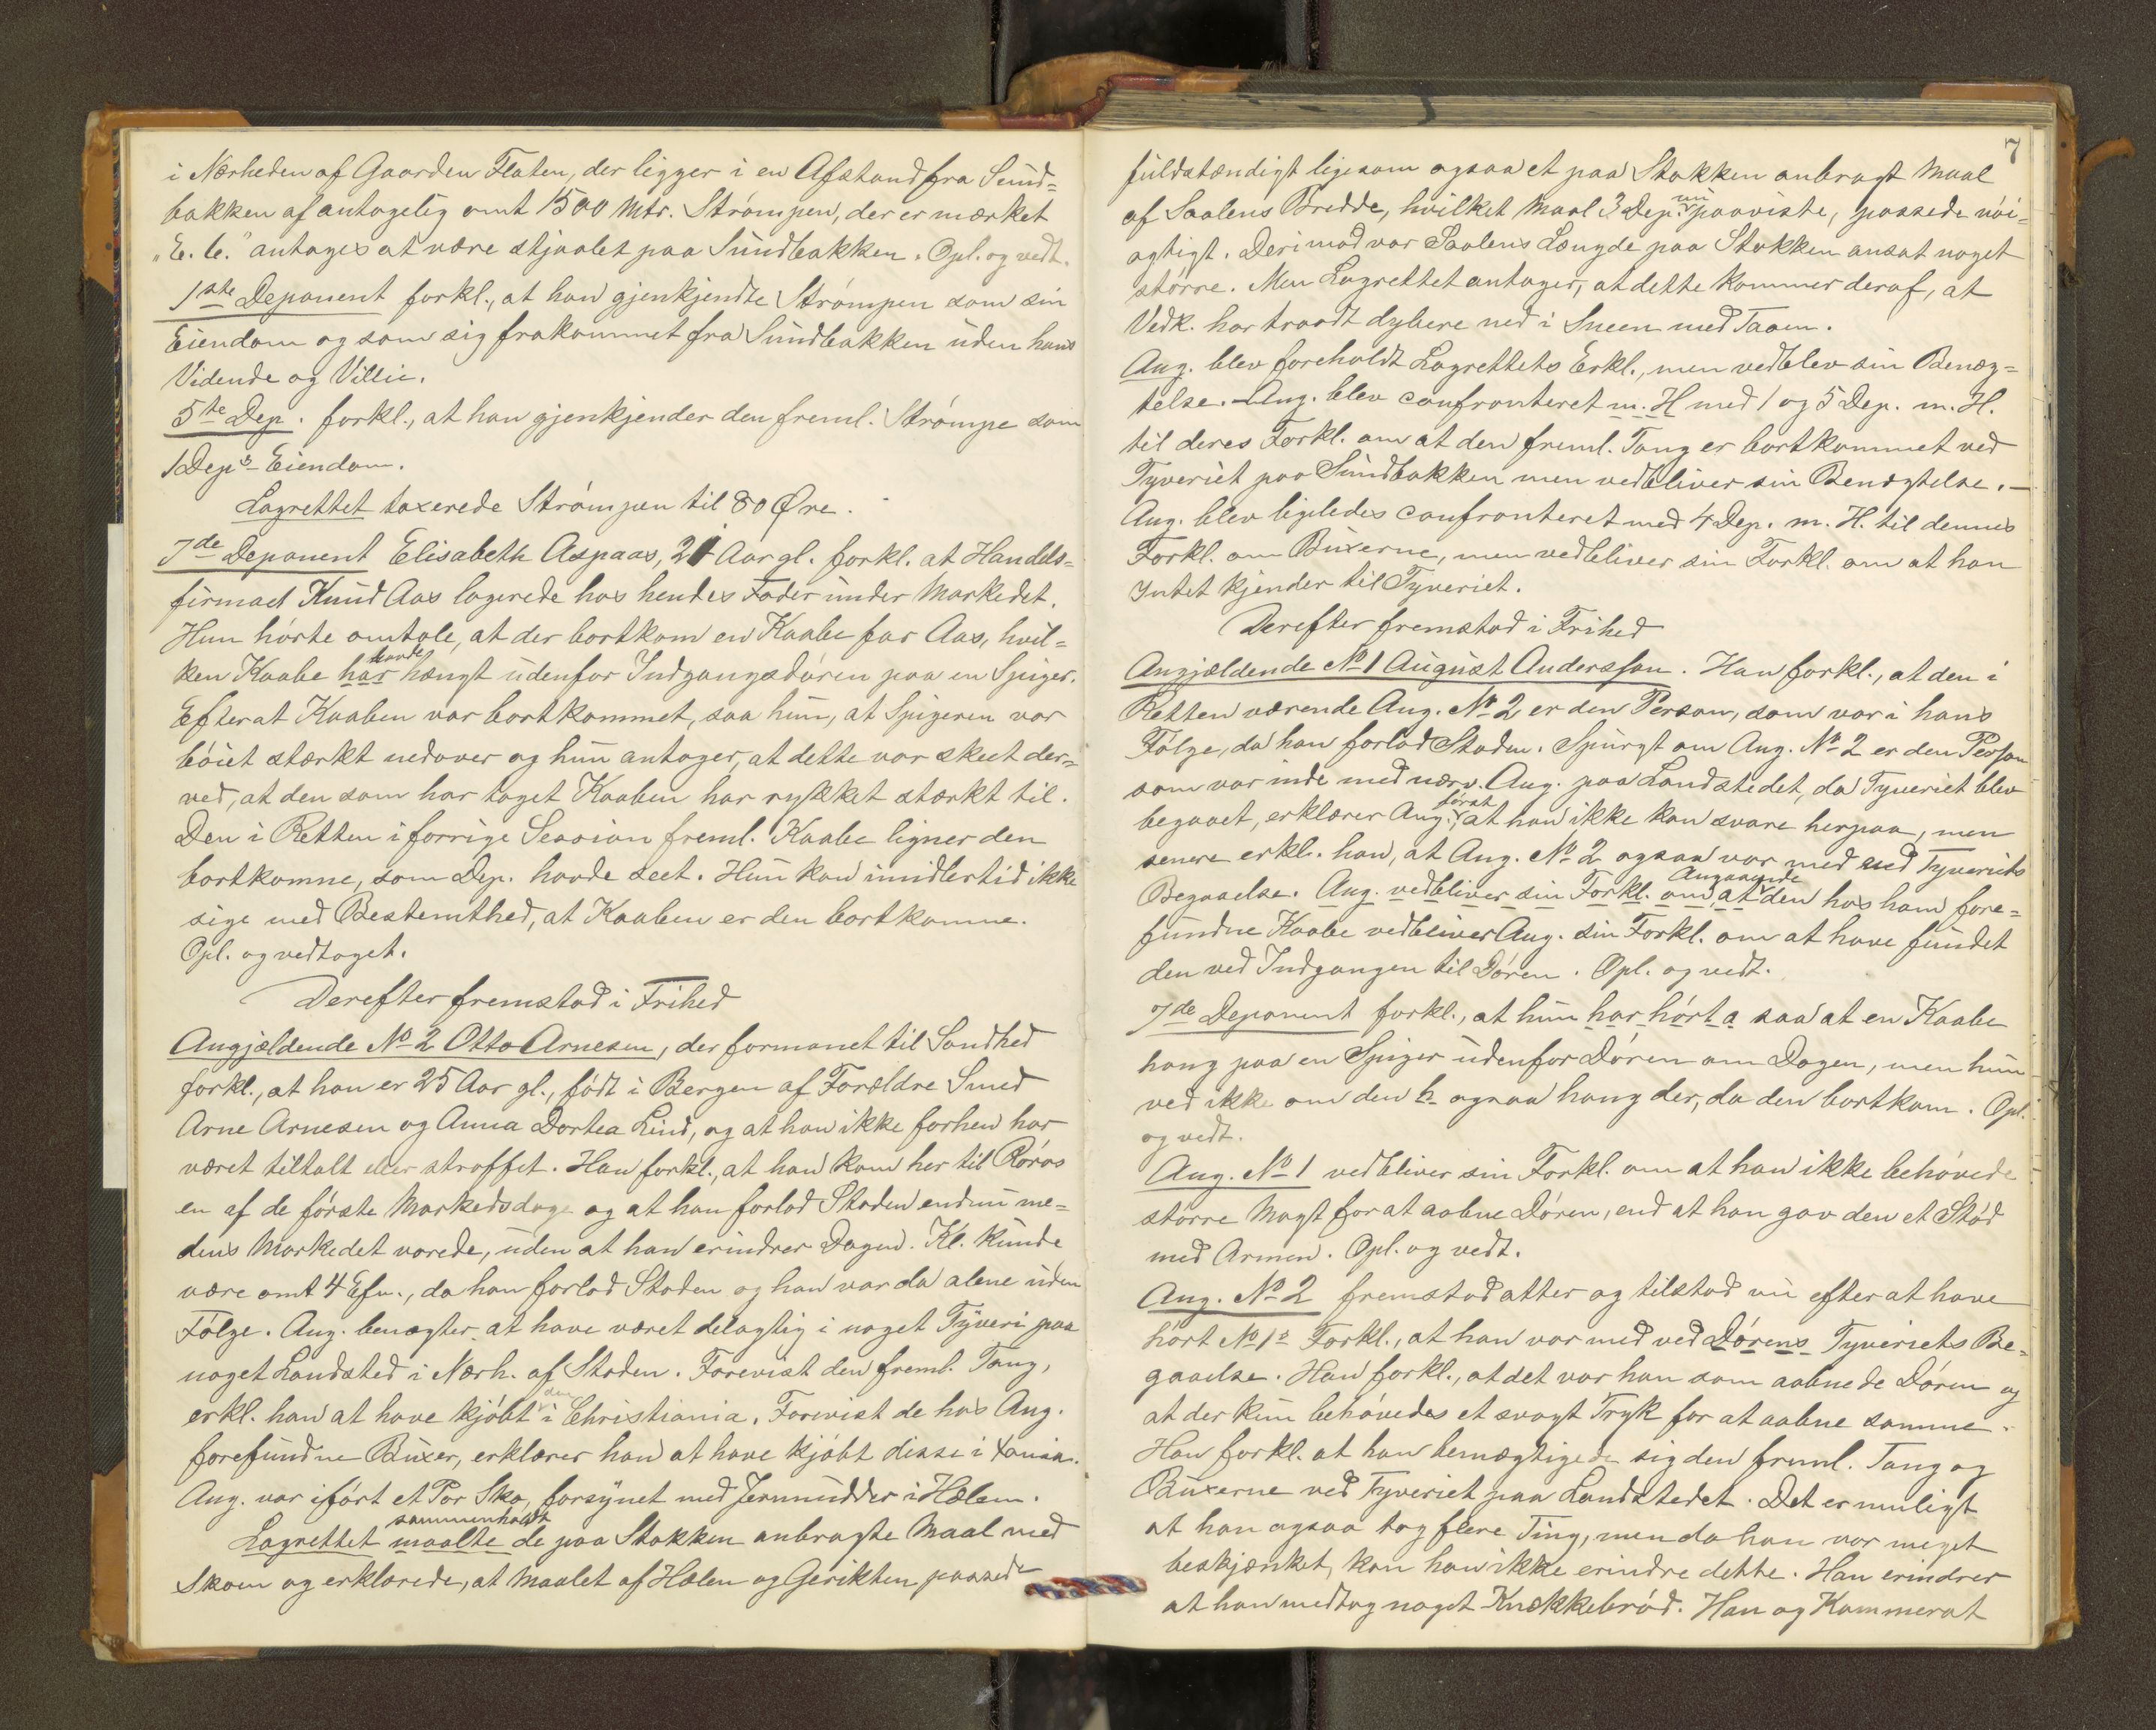 i Nærheden af Gaarden Flaten, der ligger i en Afstand fra Sund=
bakken af antagelig omt 1500 Mtr. Strømpen, der er mærket
„E. C.” antages at være stjaalet paa Sundbakken. Opl. og vedt.
1ste Deponent forkl., at han gjenkjendte Strømpen som sin
Eiendom og som sig frakommet fra Sundbakken uden hans
Vidende og Villie.
5te Dep. forkl., at han gjenkjender den freml. Strømpe som
1 Deps Eiendom.
Lagrettet taxerede Strømpen til 80 Øre.
7de Deponent Elisabeth Aspaas, 21 Aar gl. forkl. at Handels=
firmaet Knud Aas logerede hos hendes Fader under Markedet.
Hun hørte omtale, at der bortkom en Kaabe for Aas, hvil=
ken Kaabe har havde hængt udenfor Indgangsdøren paa en Spiger.
Efterat Kaaben var bortkommet, saa hun, at Spigeren var
bøiet stærkt nedover og hun antager, at dette var skeet der=
ved, at den som har taget Kaaben har rykket stærkt til.
Den i Retten i forrige Session freml. Kaabe ligner den
bortkomne, som Dep. havde seet. Hun kan imidlertid ikke
sige med Bestemthed, at Kaaben er den bortkomne.
Opl. og vedtaget.
Derefter fremstod i Frihed
Angjældende No 2 Otto Arnesen, der formanet til Sandhed
forkl., at han er 25 Aar gl., født i Bergen af Forældre Smed
Arne Arnesen og Anna Dortea Lind, og at han ikke forhen har
været tiltalt eller straffet. Han forkl., at han kom her til Røros
en af de første Markedsdage og at han forlod Staden endnu me=
dens Markedet varede, uden at han erindrer Dagen. Kl. kunde
være omt 4 Efm., da han forlod Staden og han var da alene uden
Følge. Ang. benægter at have været delagtig i noget Tyveri paa
noget Landsted i Nærh. af Staden. Forevist den freml. Tang,
erkl. han at have kjøbt den i Christiania. Forevist de hos Ang.
forefundne Buxer, erklærer han at have kjøbt disse i Xania.
Ang. var iført et Par Sko, forsynet med Jernnudder i Hælen.
Lagrettet maalte sammenholdt de paa Stokken anbragte Maal med
Skoen og erklærede, at Maalet af Hælen og Gerikten passede
7
fuldstændigt ligesom ogsaa et paa Stokken anbragt Maal
af Saalens Bredde, hvilket Maal 3 Dep. nu paaviste, passede nøi=
agtigt. Derimod var Saalens Længde paa Stokken ansat noget
større. Men Lagrettet antager, at dette kommer deraf, at
Vedk. har traadt dybere ned i Sneen med Taaen.
Ang. blev foreholdt Lagrettets Erkl., men vedblev sin Benæg=
telse. – Ang. blev confronteret m. H med 1 og 5 Dep. m. H.
til deres Forkl. om at den freml. Tang er bortkommet ved
Tyveriet paa Sundbakken men vedbliver sin Benægtelse. –
Ang. blev ligeledes confronteret med 4 Dep. m. H. til dennes
Forkl. om Buxerne, men vedbliver sin Forkl. om at han
Intet kjender til Tyveriet.
Derefter fremstod i Frihed
Angjældende No 1 August Andersson. Han forkl., at den i
Retten værende Ang. No 2 er den Person, som var i hans
Følge, da han forlod Staden. Spurgt om Ang. No 2 er den Person
som var inde med nærv. Ang. paa Landstedet, da Tyveriet blev
begaaet, erklærer Ang. først, at han ikke kan svare herpaa, men
senere erkl. han, at Ang. No 2 ogsaa var med ved Tyveriets
Begaaelse. Ang. vedbliver sin Forkl. om at Angaaende den hos ham fore=
fundne Kaabe vedbliver Ang. sin Forkl. om at have fundet
den ved Indgangen til Døren. Opl. og vedt.
7de Deponent forkl., at hun har hørt a saa at en Kaabe
hang paa en Spiger udenfor Døren om Dagen, men hun
ved ikke om den h ogsaa hang der, da den bortkom. Opl.
og vedt.
Ang. No 1 vedbliver sin Forkl. om at han ikke behøvede
større Magt for at aabne Døren, end at han gav den et Stød
med Armen. Opl. og vedt.
Ang. No 2 fremstod atter og tilstod nu efter at have
hørt No 1s Forkl., at han var med ved Dørens Tyveriets Be=
gaaelse. Han forkl., at det var han som aabnede Døren og
at der kun behøvedes et svagt Tryk for at aabne samme.
Han forkl. at han bemægtigede sig den freml. Tang og
Buxerne ved Tyveriet paa Landstedet. Det er muligt
at han ogsaa tog flere Ting, men da han var meget
beskjænket, kan han ikke erindre dette. Han erindrer
at han medtog noget Knækkebrød. Han og Kammerat